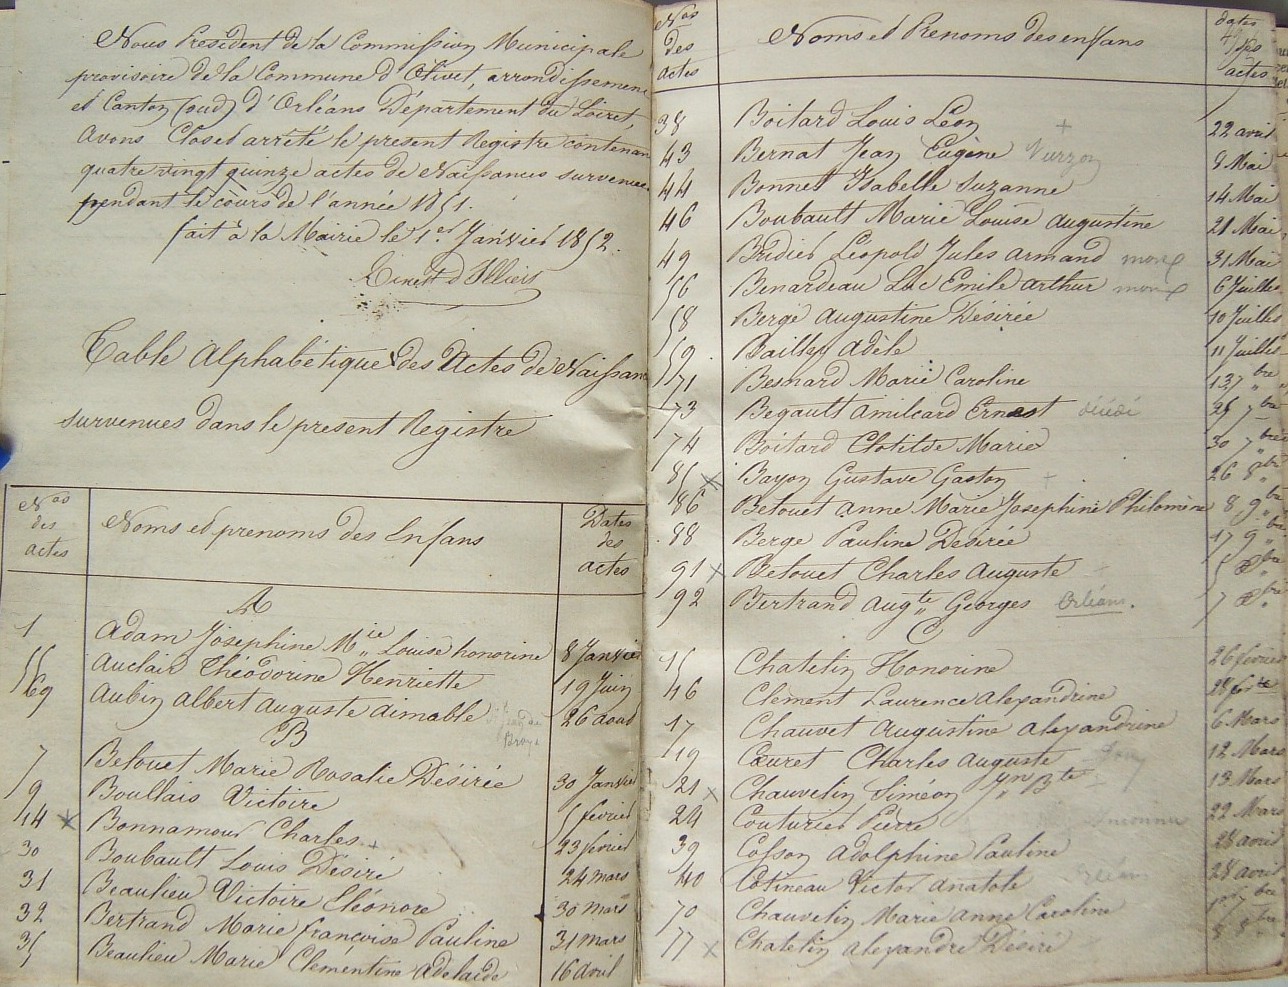 Nous President de la Commission Municipale
provisoire de la Commune d'Olivet, arrondissement
et Canton (sud) d'Orléans Département du Loiret,
avons Clos et arrêté le present Registre contenan
quatre vingt quinze actes de Naissances survenues
pendant le cours de l'année 1851.
fait à la Mairie le 1er Janvier 1852.
Ernest d'Illiers
Table Alphabétique des Actes de Naissan
survenues dans le present Registre
Nos des actes
Noms et prenoms des Enfans
Dates des actes
A
1 Adam Josephine Mie Louise honorine 8 Janvier
55 Auclair Théodorine Henriette 19 Juin
69 Aubin Albert Auguste aimable 26 aout
B
7 Betouet Marie Rosalie Désirée 30 Janvier
9 Boullais Victoire 5 février
14 Bonnamour Charles 23 février
30 Boubault Louis Désiré 24 mars
31 Beaulieu Victoire Eléonore 30 mars
32 Bertrand Marie françoise Pauline 31 mars
35 Beaulieu Marie Clementine adelaïde 16 avril
Nos des actes
Noms et Prenoms des enfans
dates des actes
38 Boitard Louis Léon 22 avril
43 Bernat Jean Eugène 8 Mai
44 Bonnet Isabelle Suzanne 14 Mai
46 Boubault Marie Louise augustine 21 Mai
49 Bridier Léopold Jules armand mort 31 Mai
56 Benardeau Luc Emile arthur mort 6 Juillet
58 Bergé augustine Désirée 10 Juillet
59 Bailley adèle 11 Juillet
71 Besnard Marie Caroline 13 7bre
73 Begault amilcard Ernest décédé 25 7bre
74 Boitard Clotilde Marie 30 7bre
85 Bayon Gustave Gaston 26 8bre
86 Betouet anne Marie Josephine Philomène 8 9bre
88 Bergé Pauline Desirée 17 9bre
91 Betouet Charles auguste 5 Xbre
92 Bertrand augte Georges Orléans. 7 Xbre
C
15 Chatelin Honorine 26 février
16 Clement Laurence alexandrine 28 fer
17 Chauvet augustine alexandrine 6 Mars
19 Cœuret Charles auguste 12 Mars
21 Chauvelin Siméon Jn Bte 13 Mars
24 Couturier Pierre inconnu 22 Mars
39 Cosson adolphine Pauline 28 avril
40 Cotineau Victor anatole Orléans 28 avril
70 Chauvelin Marie anne Caroline 1er 7bre
77 Chatelin alexandre Désiré 5 8bre